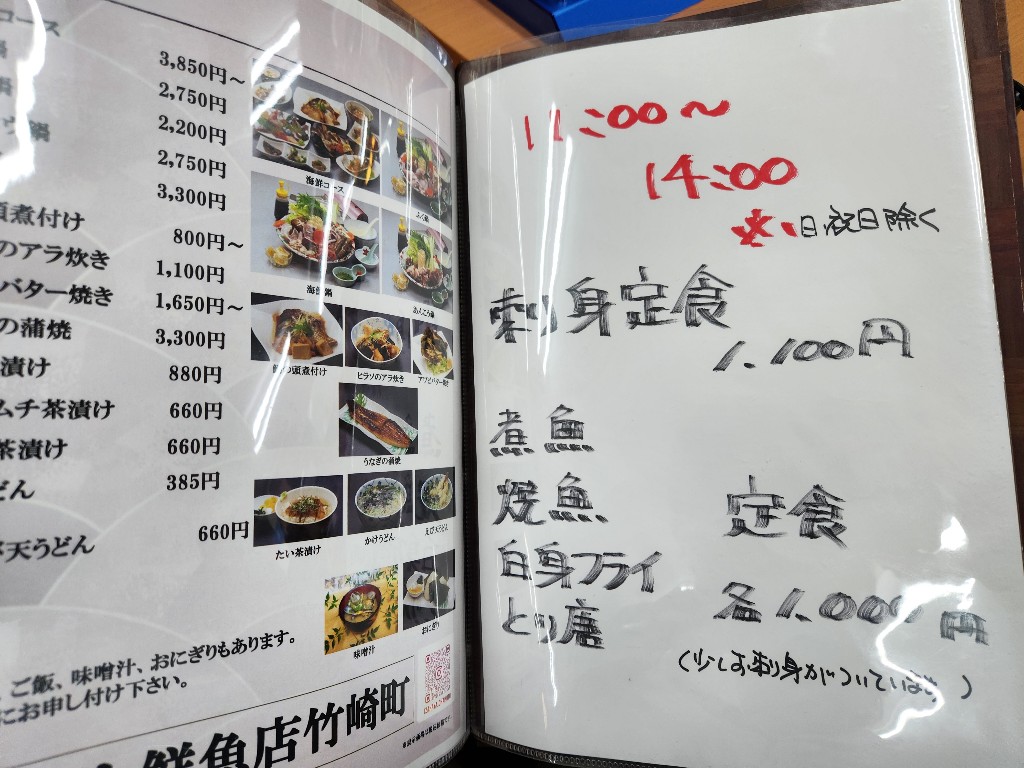 コース
3,850円～
2,750円
2,200円
2,750円
3,300円
頭煮付け 800円～
のアラ炊き 1,100円
バター焼き 1,650円～
の蒲焼 3,300円
漬け 880円
ムチ茶漬け 660円
茶漬け 660円
どん 385円
天うどん 660円
海鮮コース
ふく鍋
海鮮鍋
あんこう鍋
の頭煮付け
ヒラソのアラ炊き
うなぎの蒲焼
たい茶漬け
かけうどん
えび天うどん
味噌汁
おにぎり
、ご飯、味噌汁、おにぎりもあります。
にお申し付け下さい。
鮮魚店竹崎町
11:00～
14:00
日祝日除く
刺身定食
1.100円
煮魚
焼魚
白身フライ
とり唐
定食
各1.000円
(少しお刺身がついています)